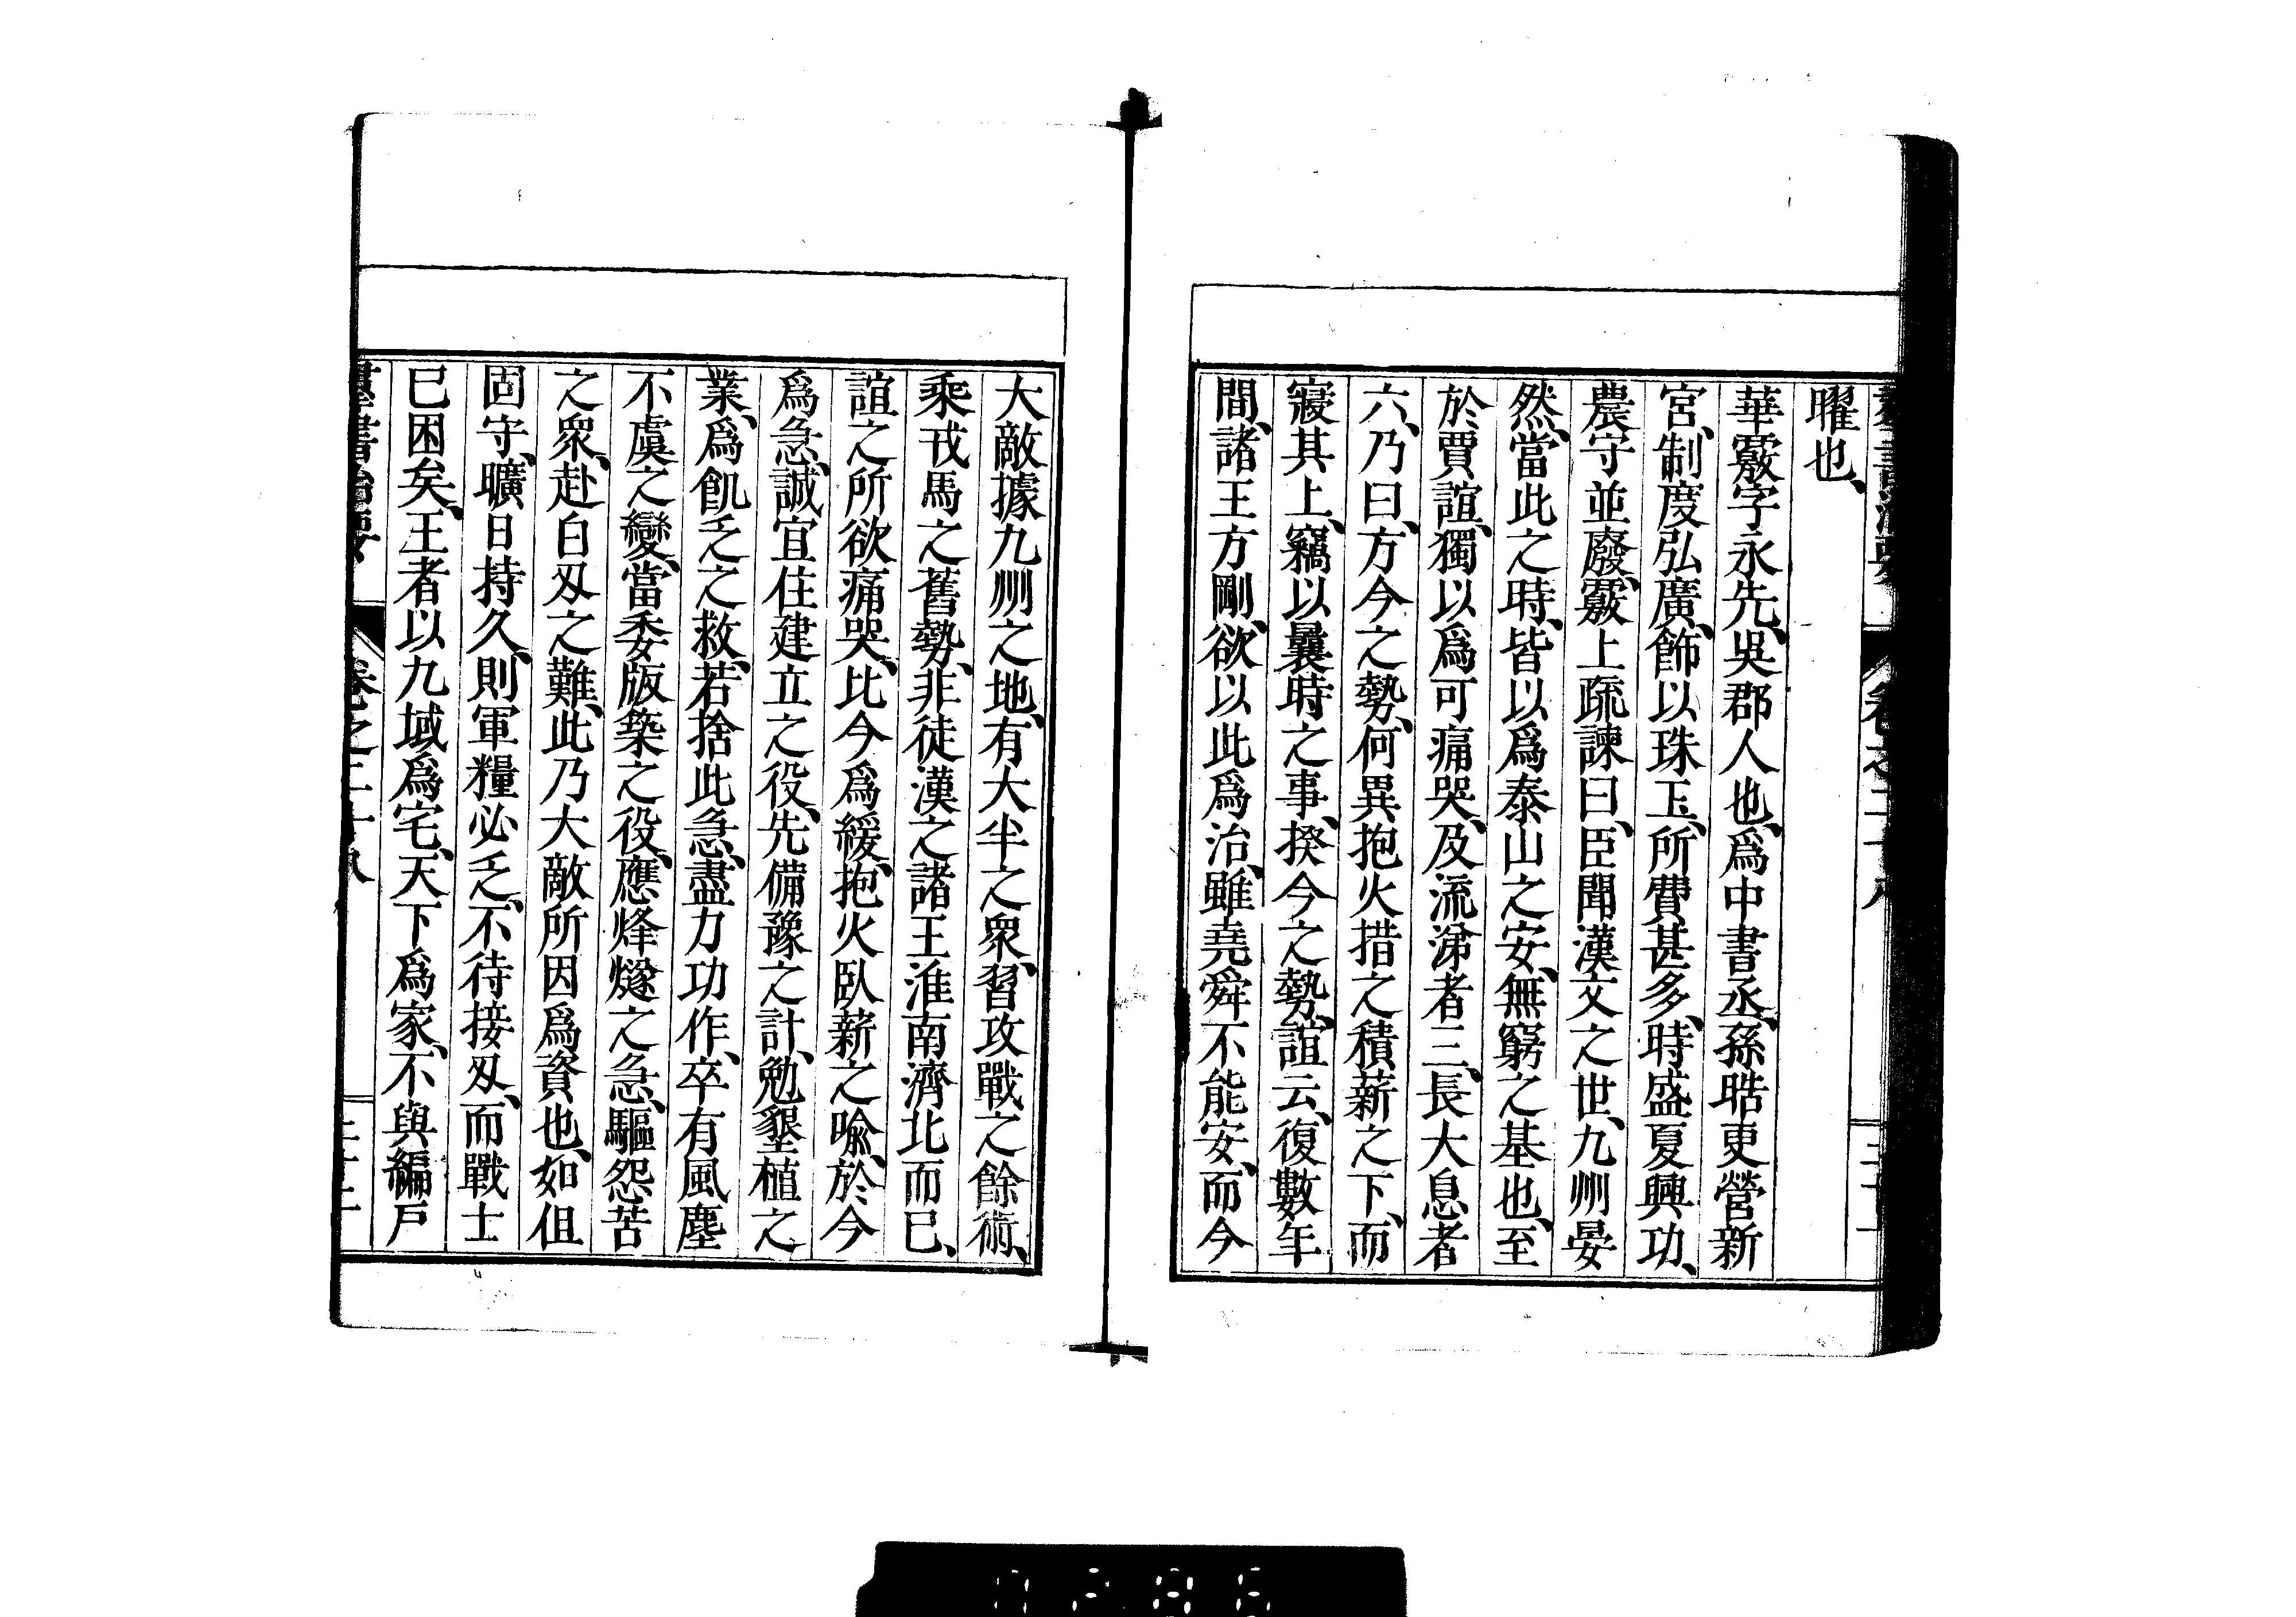 曜也、
華覈字永先、吳郡人也、爲中書丞、孫晧更營新
宮、制度弘廣、飾以珠玉、所費甚多、時盛夏興功、
農守並廢、覈上疏諫曰、臣聞漢文之世、九州晏
然、當此之時、皆以爲泰山之安、無窮之基也、至
於賈誼、獨以爲可痛哭、及流涕者三、長大息者
六、乃曰、方今之勢、何異抱火措之積薪之下、而
寢其上、竊以曩時之事、揆今之勢、誼云、復數年
間、諸王方剛、欲以此爲治、雖堯舜不能安、而今
大敵據九州之地、有大半之衆、習攻戰之餘術、
乘戎馬之舊勢、非徒漢之諸王淮南濟北而已、
誼之所欲痛哭、比今爲緩、抱火臥薪之喩、於今
爲急、誠宜住建立之役、先備豫之計、勉墾植之
業、爲飢乏之救、若捨此急、盡力功作、卒有風塵
不虞之變、當委版築之役、應烽燧之急、驅怨苦
之衆、赴白刄之難、此乃大敵所因爲資也、如但
固守、曠日持久、則軍糧必乏、不待接刄、而戰士
已困矣、王者以九域爲宅、天下爲家、不與編戶